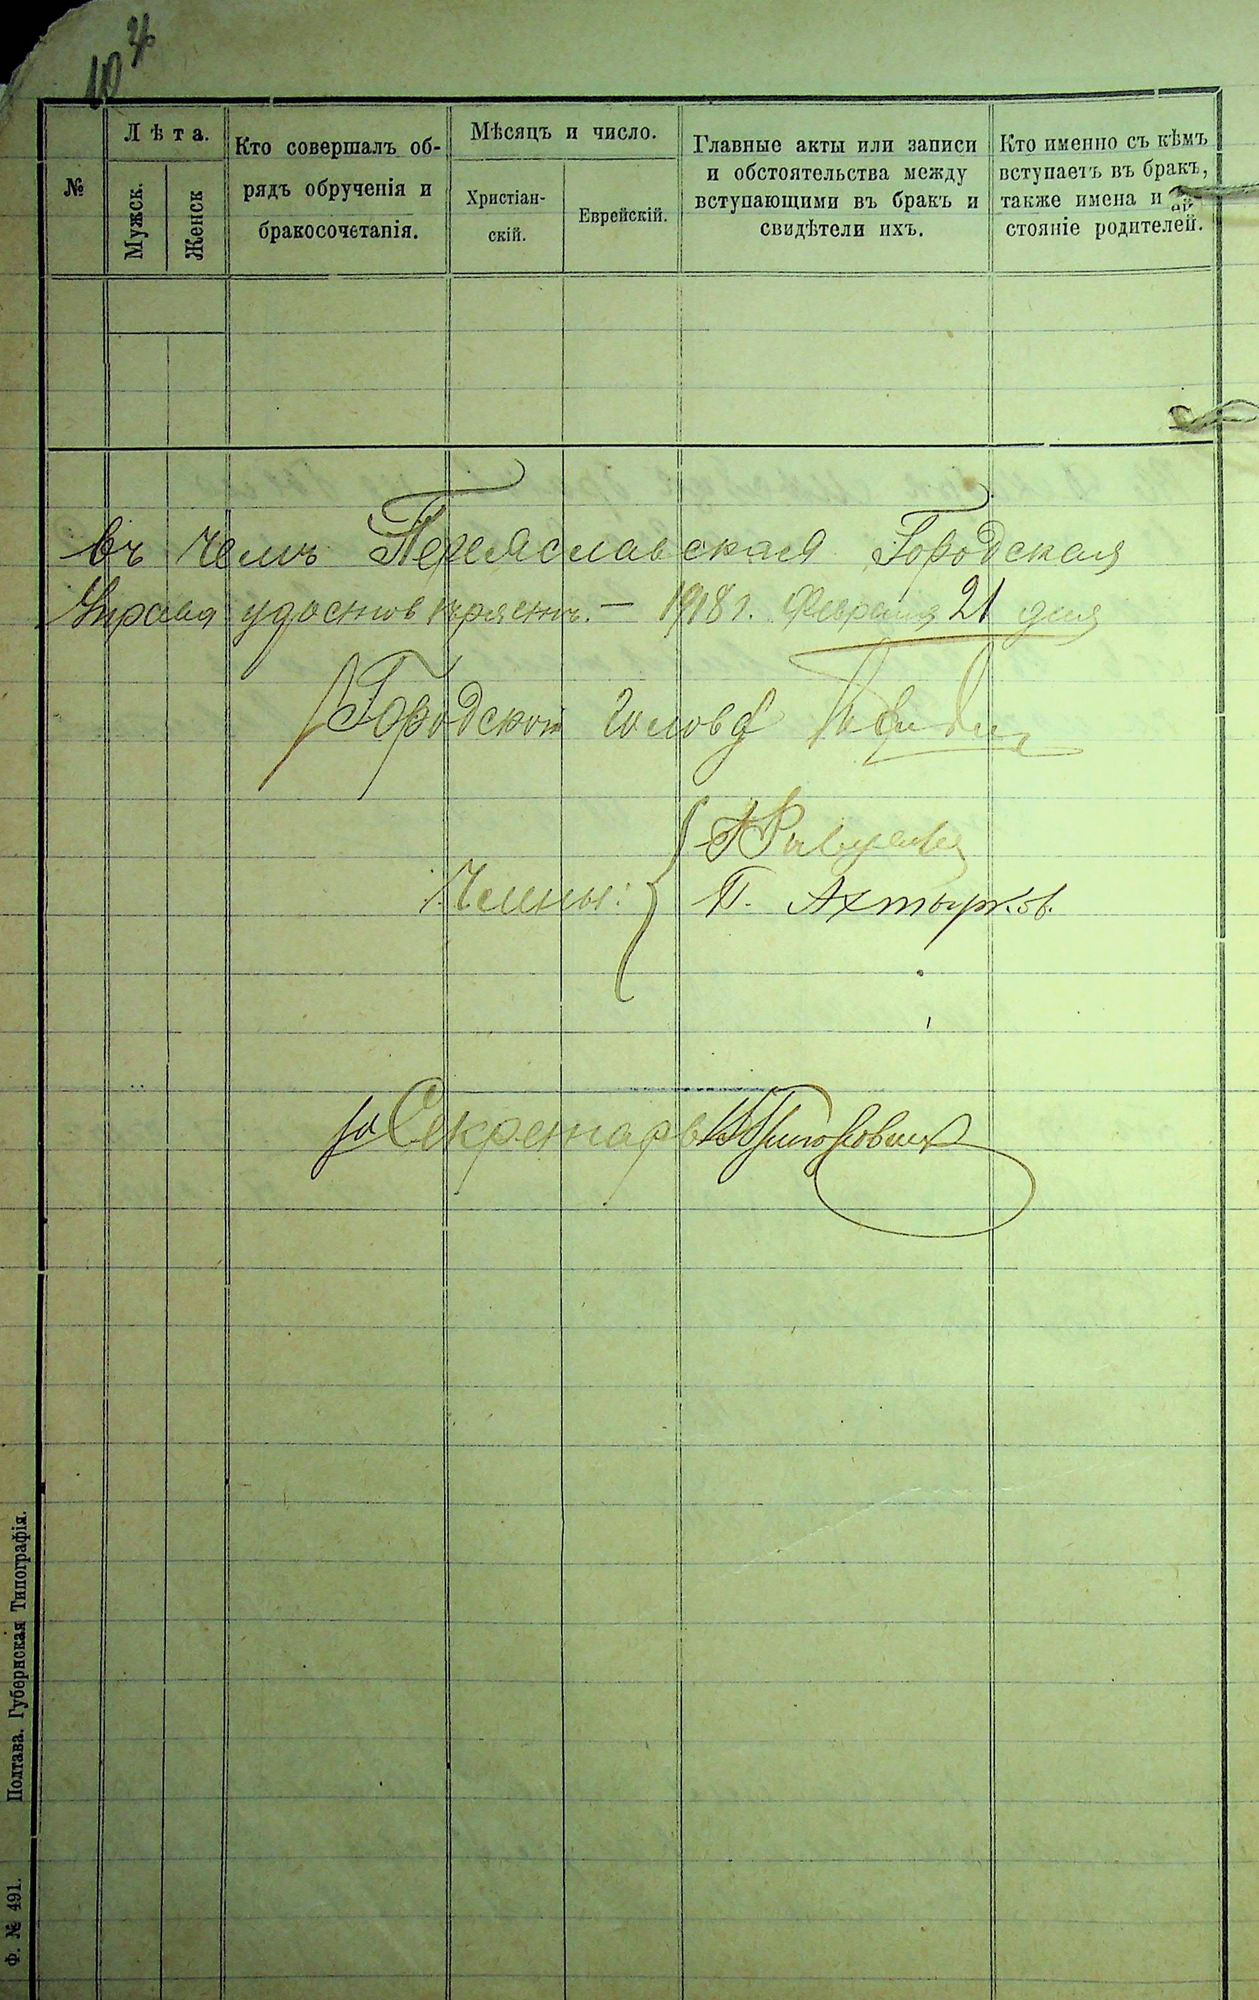 10
№
Лѣта.
Мужск.
Женск
Кто совершалъ об-
рядъ обрученія и
бракосочетанія.
Мѣсяцъ и число.
Христіан-
скій.
Еврейскій.
Главные акты или записи
и обстоятельства между
вступающими въ бракъ и
свидѣтели ихъ.
Кто именно съ кѣмъ
вступаетъ въ бракъ,
также имена и
стояніе родителей.
въ чемъ Переяславская Городская
Управа удостовѣряетъ. — 1918 г. Февраля 21 дня
Городской голова
Члены:
П. Ахтырков.
за Секретаря Григоровичъ
Полтава. Губернская Типографія.
Ф. № 491.